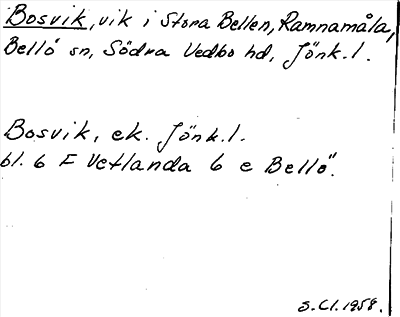 Bosvik, vik i Stora Bellen, Ramnamåla,
Bellö sn, Södra Vedbo hd, Jönk.l.
Bosvik, ek. Jönk.l.
bl. 6 F Vetlanda 6 e Bellö.
S.Cl. 1958.